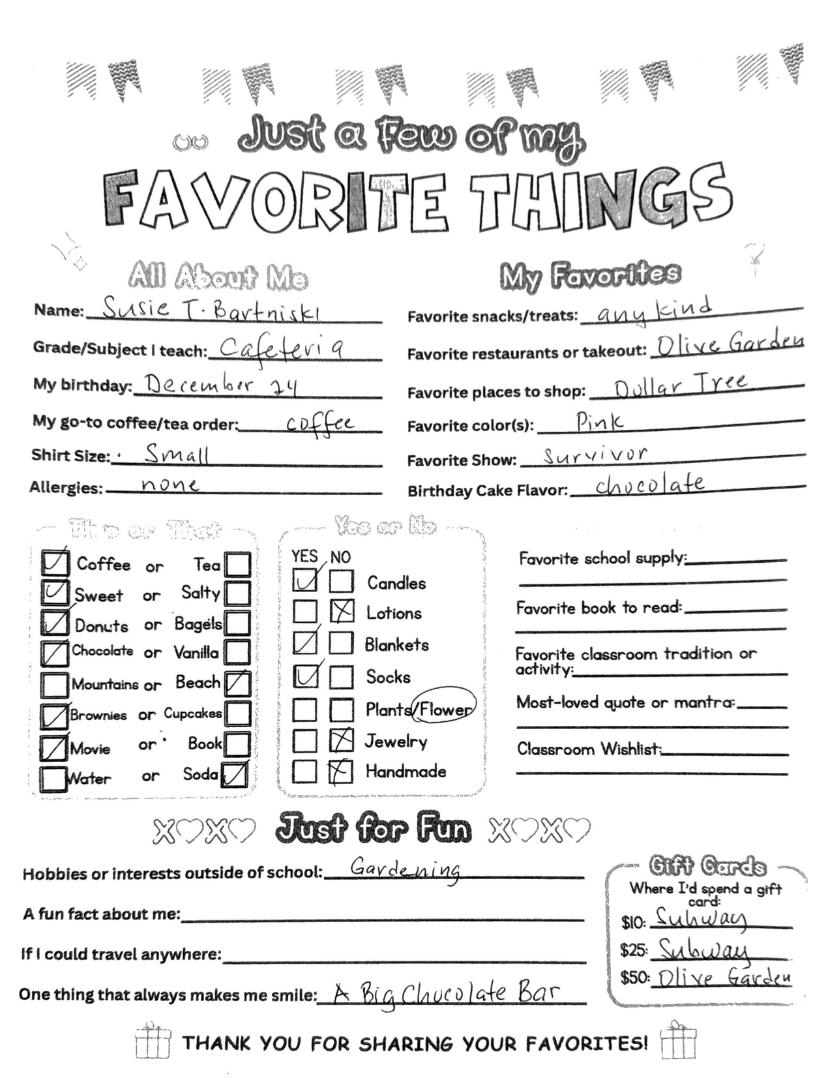 Just a Few of my
FAVORITE THINGS
All About Me
Name: Susie T. Bartniski
Grade/Subject I teach: Cafeteria
My birthday: December 24
My go-to coffee/tea order: coffee
Shirt Size: Small
Allergies: none
My Favorites
Favorite snacks/treats: any kind
Favorite restaurants or takeout: Olive Garden
Favorite places to shop: Dollar Tree
Favorite color(s): Pink
Favorite Show: Survivor
Birthday Cake Flavor: chocolate
This or That
Coffee or Tea
Sweet or Salty
Donuts or Bagels
Chocolate or Vanilla
Mountains or Beach
Brownies or Cupcakes
Movie or Book
Water or Soda
Yes or No
YES NO
Candles
Lotions
Blankets
Socks
Plants/Flower
Jewelry
Handmade
Favorite school supply:
Favorite book to read:
Favorite classroom tradition or
activity:
Most-loved quote or mantra:
Classroom Wishlist:
XOXO Just for Fun XOXO
Hobbies or interests outside of school: Gardening
A fun fact about me:
If I could travel anywhere:
One thing that always makes me smile: A Big Chucolate Bar
Gift Cards
Where I'd spend a gift
card:
$10: Subway
$25: Subway
$50: Olive Garden
THANK YOU FOR SHARING YOUR FAVORITES!